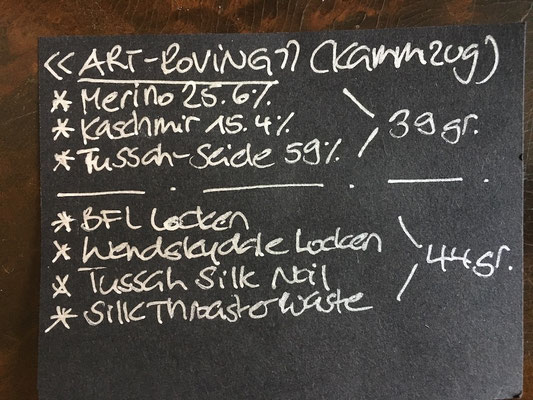 << ART-ROVING >> (Kammzug)
* Merino 25.6%
* Kaschmir 15.4%
* Tussah-Seide 59%
39 gr.
* BFL Locken
* Wendsleydale Locken
* Tussah Silk Noil
* Silk Throaster Waste
44 gr.